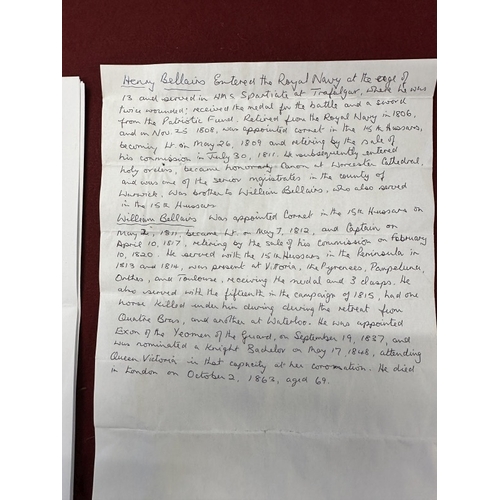 Henry Bellairs Entered the Royal Navy at the age of
13 and served in HMS Spartiate at Trafalgar, where he was
twice wounded; received the medal for the battle and a sword
from the Patriotic Fund. Retired from the Royal Navy in 1806,
and on Nov 25 1808, was appointed cornet in the 15th Hussars,
becoming Lt on May 26, 1809 and retiring by the sale of
his commission in July 30, 1811. He subsequently entered
holy orders, became honorary Canon at Worcester Cathedral,
and was one of the senior magistrates in the county of
Warwick. Was brother to William Bellairs, who also served
in the 15th Hussars
William Bellairs Was appointed Cornet in the 15th Hussars on
May 2, 1811, became Lt on May 7, 1812, and Captain on
April 10, 1817, retiring by the sale of his commission on February
10, 1820. He served with the 15th Hussars in the Peninsula in
1813 and 1814, was present at Vittoria, the Pyrenees, Pampeluna,
Orthes, and Toulouse, receiving the medal and 3 clasps. He
also served with the fifteenth in the campaign of 1815, had one
horse killed under him during during the retreat from
Quatre Bras, and another at Waterloo. He was appointed
Exon of the Yeomen of the Guard, on September 19, 1837, and
was nominated a Knight Bachelor on May 17, 1848, attending
Queen Victoria in that capacity at her coronation. He died
in London on October 2, 1863, aged 69.